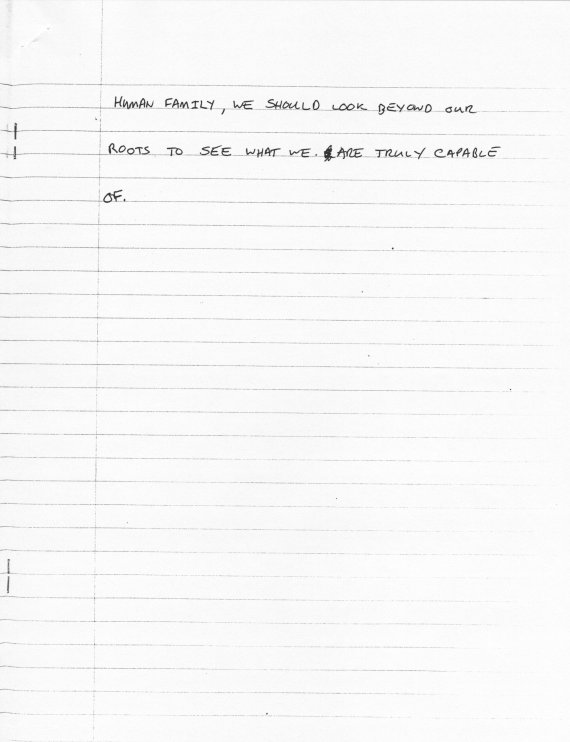 HUMAN FAMILY, WE SHOULD LOOK BEYOND OUR
ROOTS TO SEE WHAT WE. ARE TRULY CAPABLE
OF.